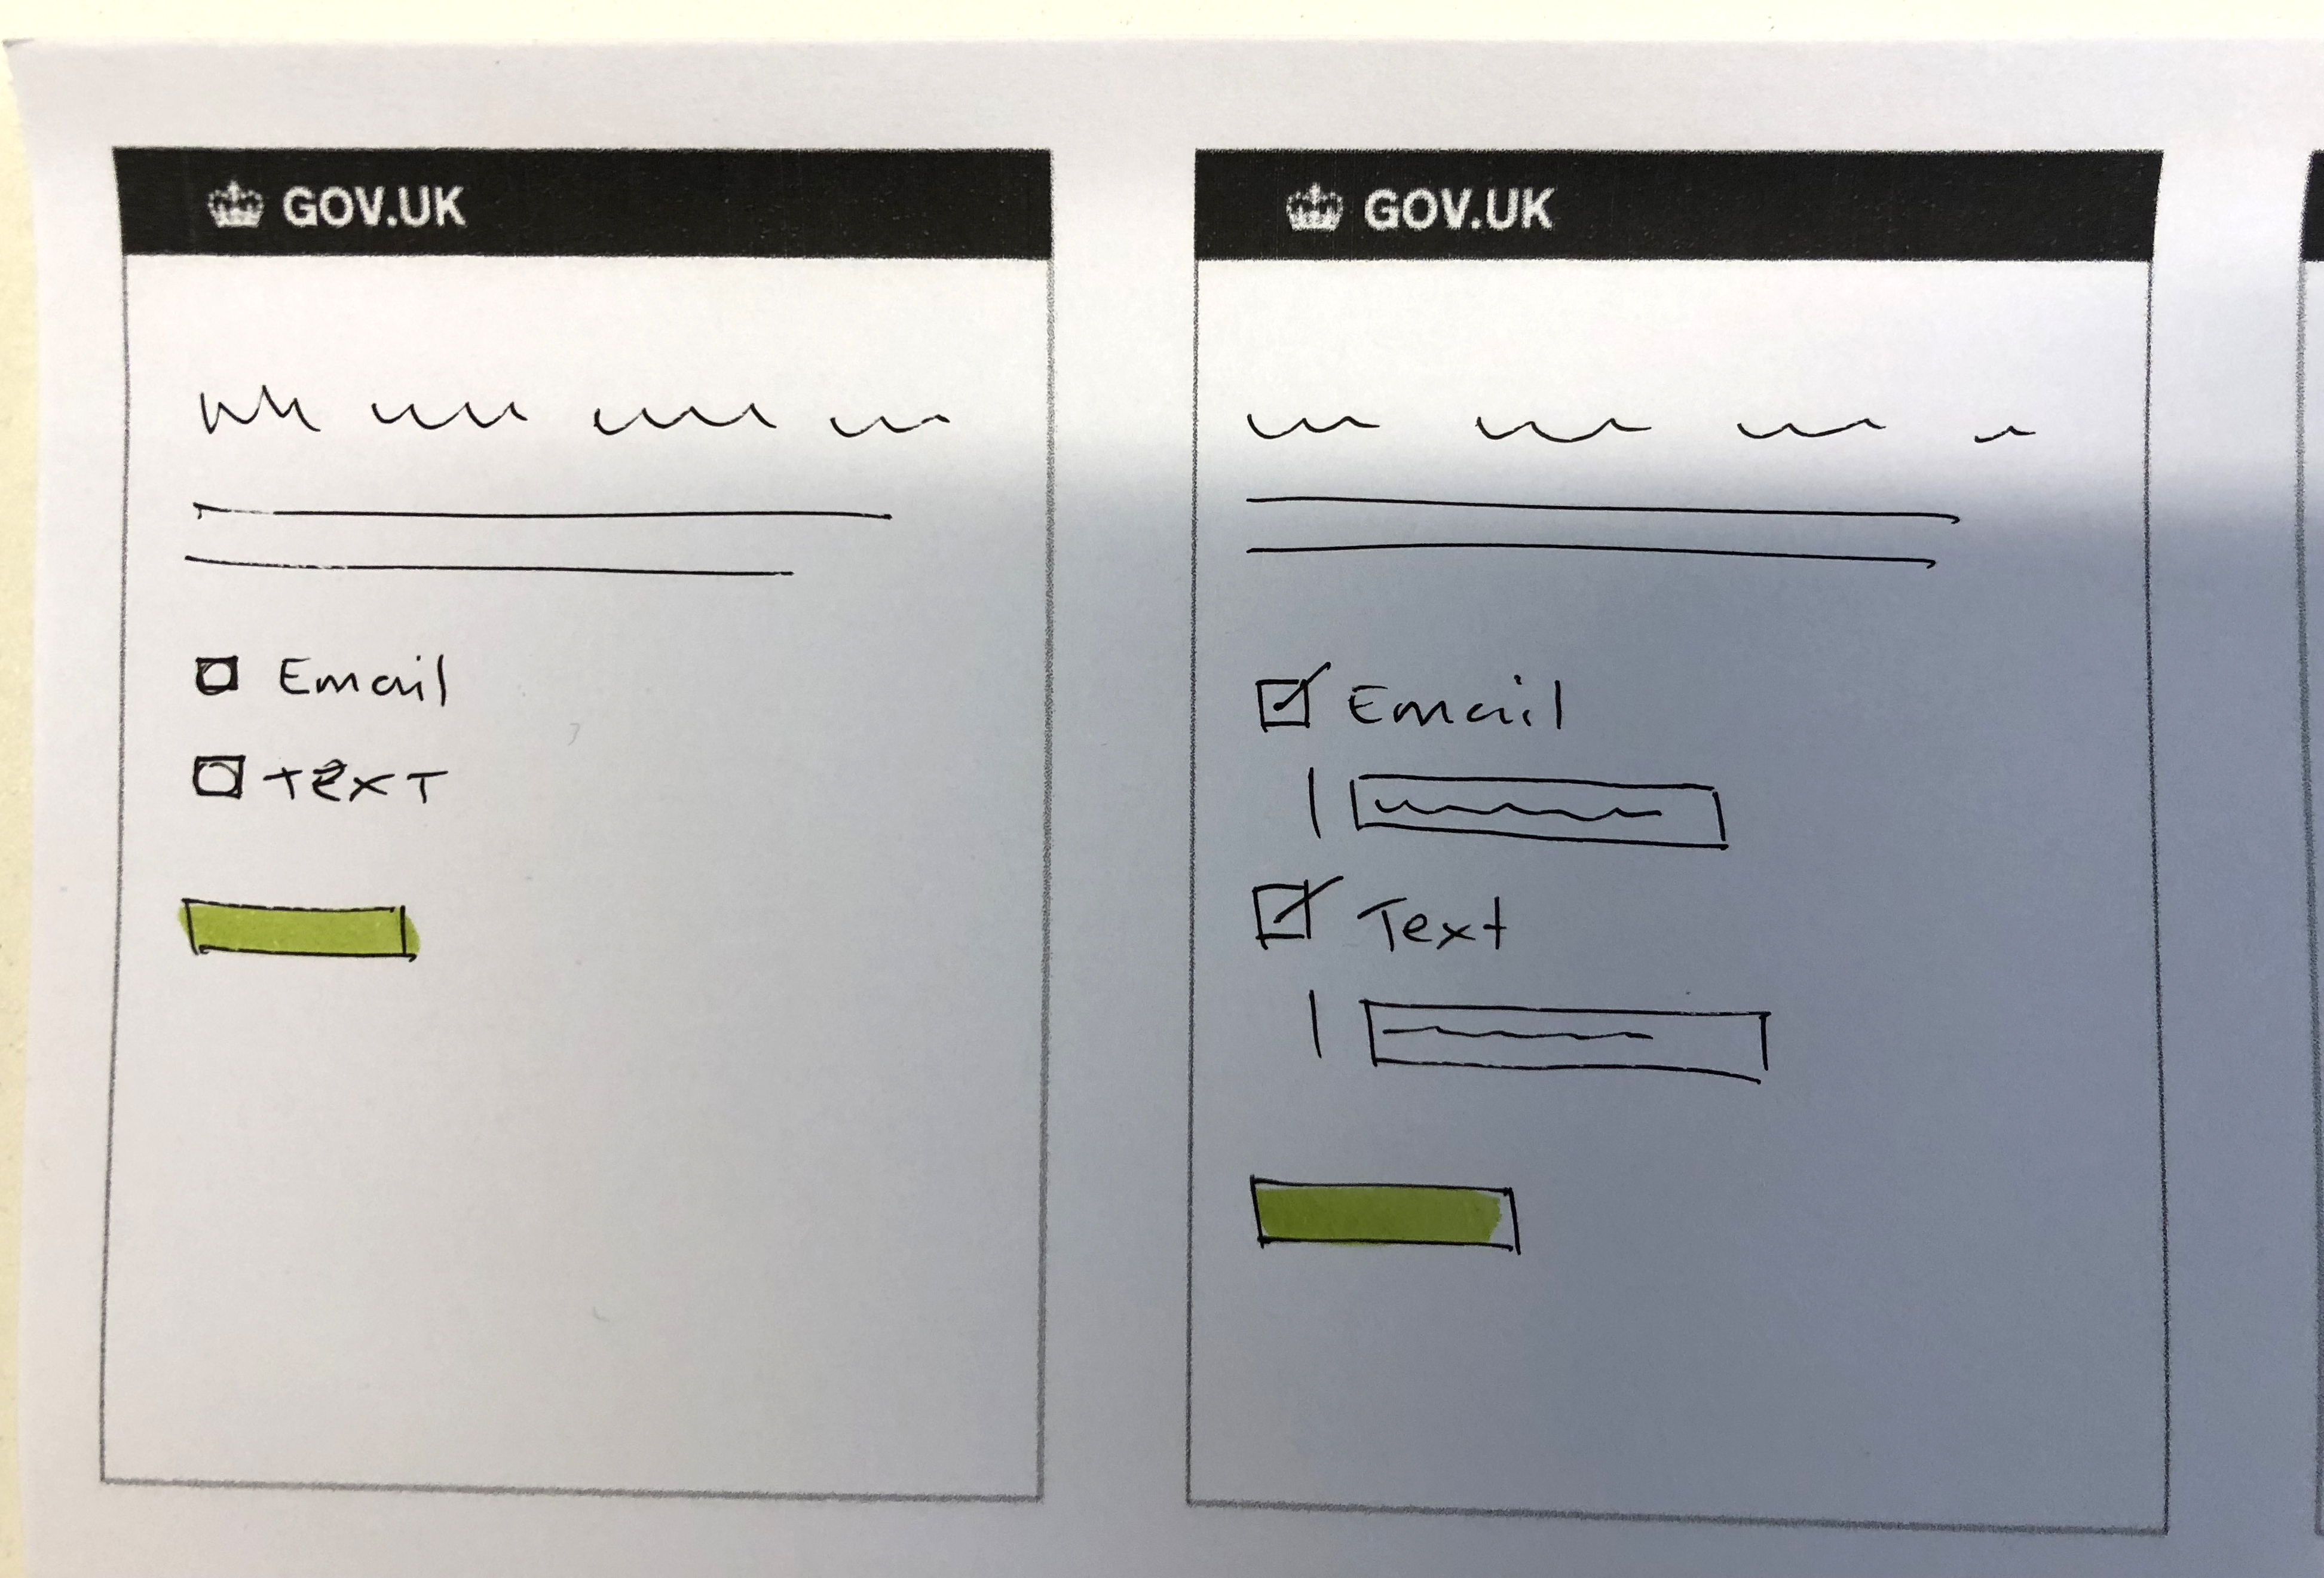 GOV.UK
Email
TEXT
GOV.UK
Email
Text